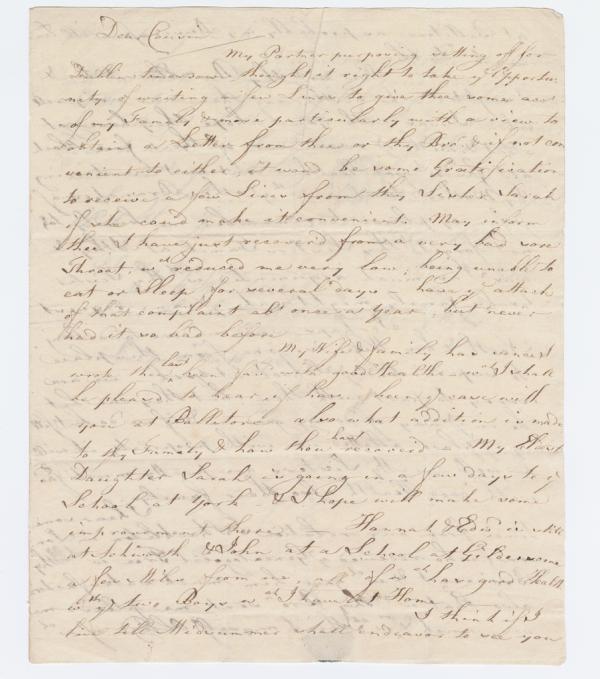 Dear Cousin
My Partner purposing setting off for
Dublin thought it right to take ye Opportu
nity of writing a few Lines, to give thee some acct
of my Family & more particularly with a view to
obtain a Letter from thee or thy Bror & if not con
venient to either, it woud be some Gratification
to receive a few Lines from thy Sister Sarah
if she coud make it convenient. May inform
thee I have just recoverd from a very bad sore
Throat, wch reduced me very low, being unable to
eat or sleep for several days have ye attack
of that complaint abt once a year, but never
had it so bad before
My Wife & family has since I
wrote the last been favd with good Health wch I shall
be pleasd to hear if have been ye case with
you at Balletore also what addition is made
to thy Family & how thou hast recoverd My Eldest
Daughter Sarah is going in a few days to ye
School at York & I hope will make some
improvement there Hannah & Edwd is still
at Ackworth & John at a School at Gildersome
a few Miles from us, all of wch have good Health
wth ye two Boys wch I have at Home
I think if I
live till Midsummer shall endeavor to see you